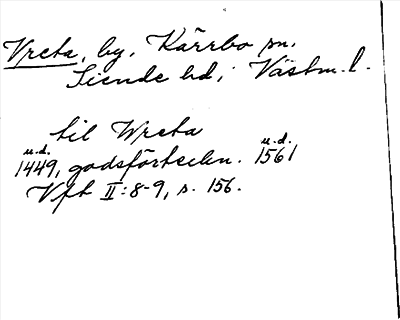 Vreta, by, Kärrbo sn,
Siende hd; Västm. l.
til Wreta
u.d. u.d.
1449, godsförteckn. 1561
Vft II: 8-9, s. 156.